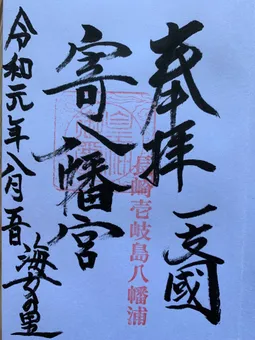 奉拝 一支國
長崎壱岐島八幡浦
寄八幡宮
令和元年八月吾日 海女の里